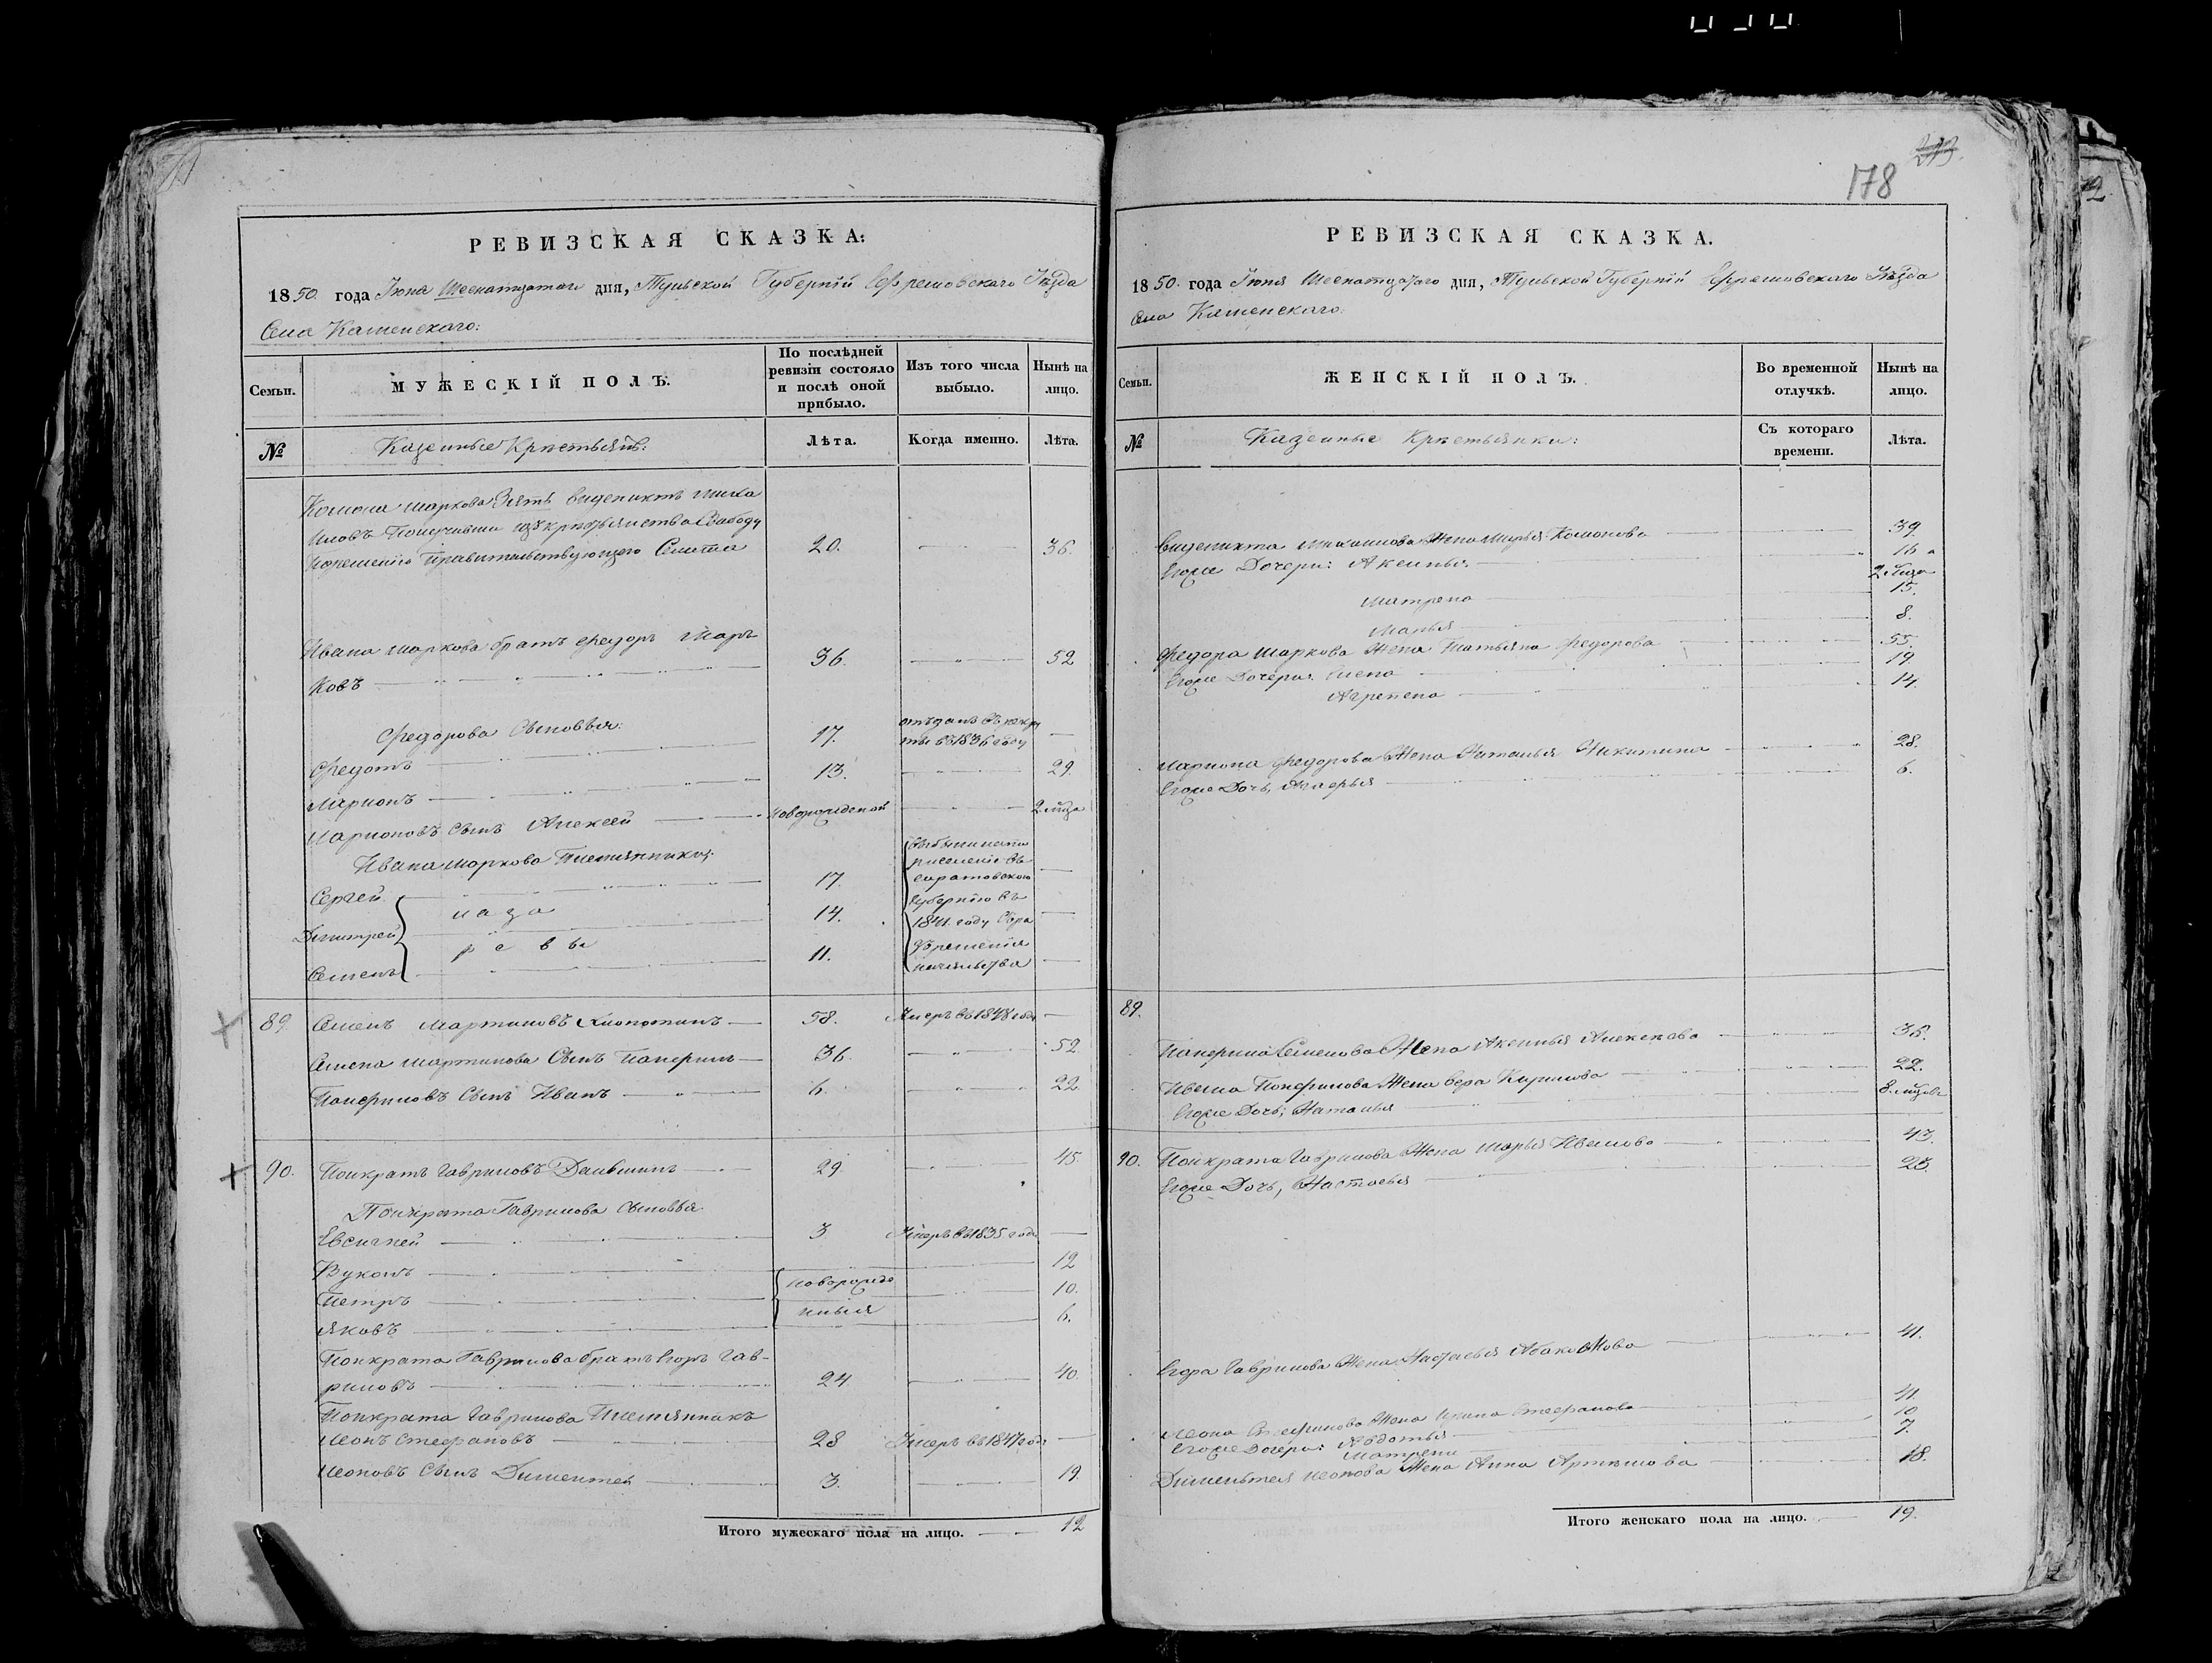 213.
178
РЕВИЗСКАЯ СКАЗКА:
1850 года Іюня Шеснатцатаго дня, Тульской Губерніи Ефремовскаго Уѣзда
Села Каменскаго:
Семьи.
МУЖЕСКІЙ ПОЛЪ.
По послѣдней ревизіи состояло и послѣ оной прибыло.
Изъ того числа выбыло.
Нынѣ на лицо.
№
Казенные Крестьянѣ:
Лѣта.
Когда именно.
Лѣта.
маркова Зять
Получивши Свабоду
Порешенію Правительствующего Сената 20. 36.
Ивана маркова братъ федоръ Мар
ковъ 36. 52
федорова Сыновья:
федотъ 17. отъданъ въ 1836 году
Ларионъ 13. 29.
Ларионовъ Сынъ Алексей новорожденой 2 мѣца
Ивана маркова Племянники:
Сергей 17.
Дмитрей 14.
Семенъ 11.
назаревы
Саратовскою
Губернію въ
1841 году Ора
зрешенія
началства
89. Семенъ мартиновъ 58. Умеръ въ 1848 годе
Семена мартинова Сынъ Панерилъ 36. 52.
Сынъ Иванъ 6. 22.
90. Понкратъ Гавриловъ 29. 45.
Понкрата Гаврилова Сыновья
Евсигней 3 Умеръ въ 1835 годе
Вуколъ 12
Петръ новорожде 10.
Яковъ ныия 6.
Понкрата Гаврилова братъ Егоръ Гав-
риловъ 24. 40.
Понкрата Гаврилова Племянникъ
Леонъ Стефановъ 28 Умеръ въ 1847 годе
Леоновъ Сынъ Дементей 3. 19.
Итого мужескаго пола на лицо. 12
РЕВИЗСКАЯ СКАЗКА.
1850. года Іюня Шеснатцатаго дня, Тульской Губерніи Ефремовскаго Уѣзда
Села Каменскаго.
Семьи.
ЖЕНСКІЙ ПОЛЪ.
Во временной отлучкѣ.
Нынѣ на лицо.
№
Казенные Крестьянки:
Съ котораго времени.
Лѣта.
Жена Марья 39.
Егоже Дочери: Аксинья 16
2 лица
Матрена 15.
Марья 8.
федора маркова Жена Татьяна федорова 55.
Егоже Дочери: Елена 19.
Агрепена 14.
Лариона федорова Жена Наталья Никитина 28.
Егоже Дочь, 6.
89.
Семенова Жена Аксинья 36.
Ивана Жена вера Кирилова 22.
Егоже Дочь; Наталья 8 мѣцовъ
90. Понкрата Гаврилова Жена Марья Иванова 43.
Егоже Дочь, Настасья 23.
Егора Гаврилова Жена Настасья 41.
Леона Стефанова Жена Ирина Стефанова 41.
Егоже Дочери: Авдотья 10
Матрена 7.
Дементея Леонова Жена Анна Артемова 18.
Итого женскаго пола на лицо. 19.